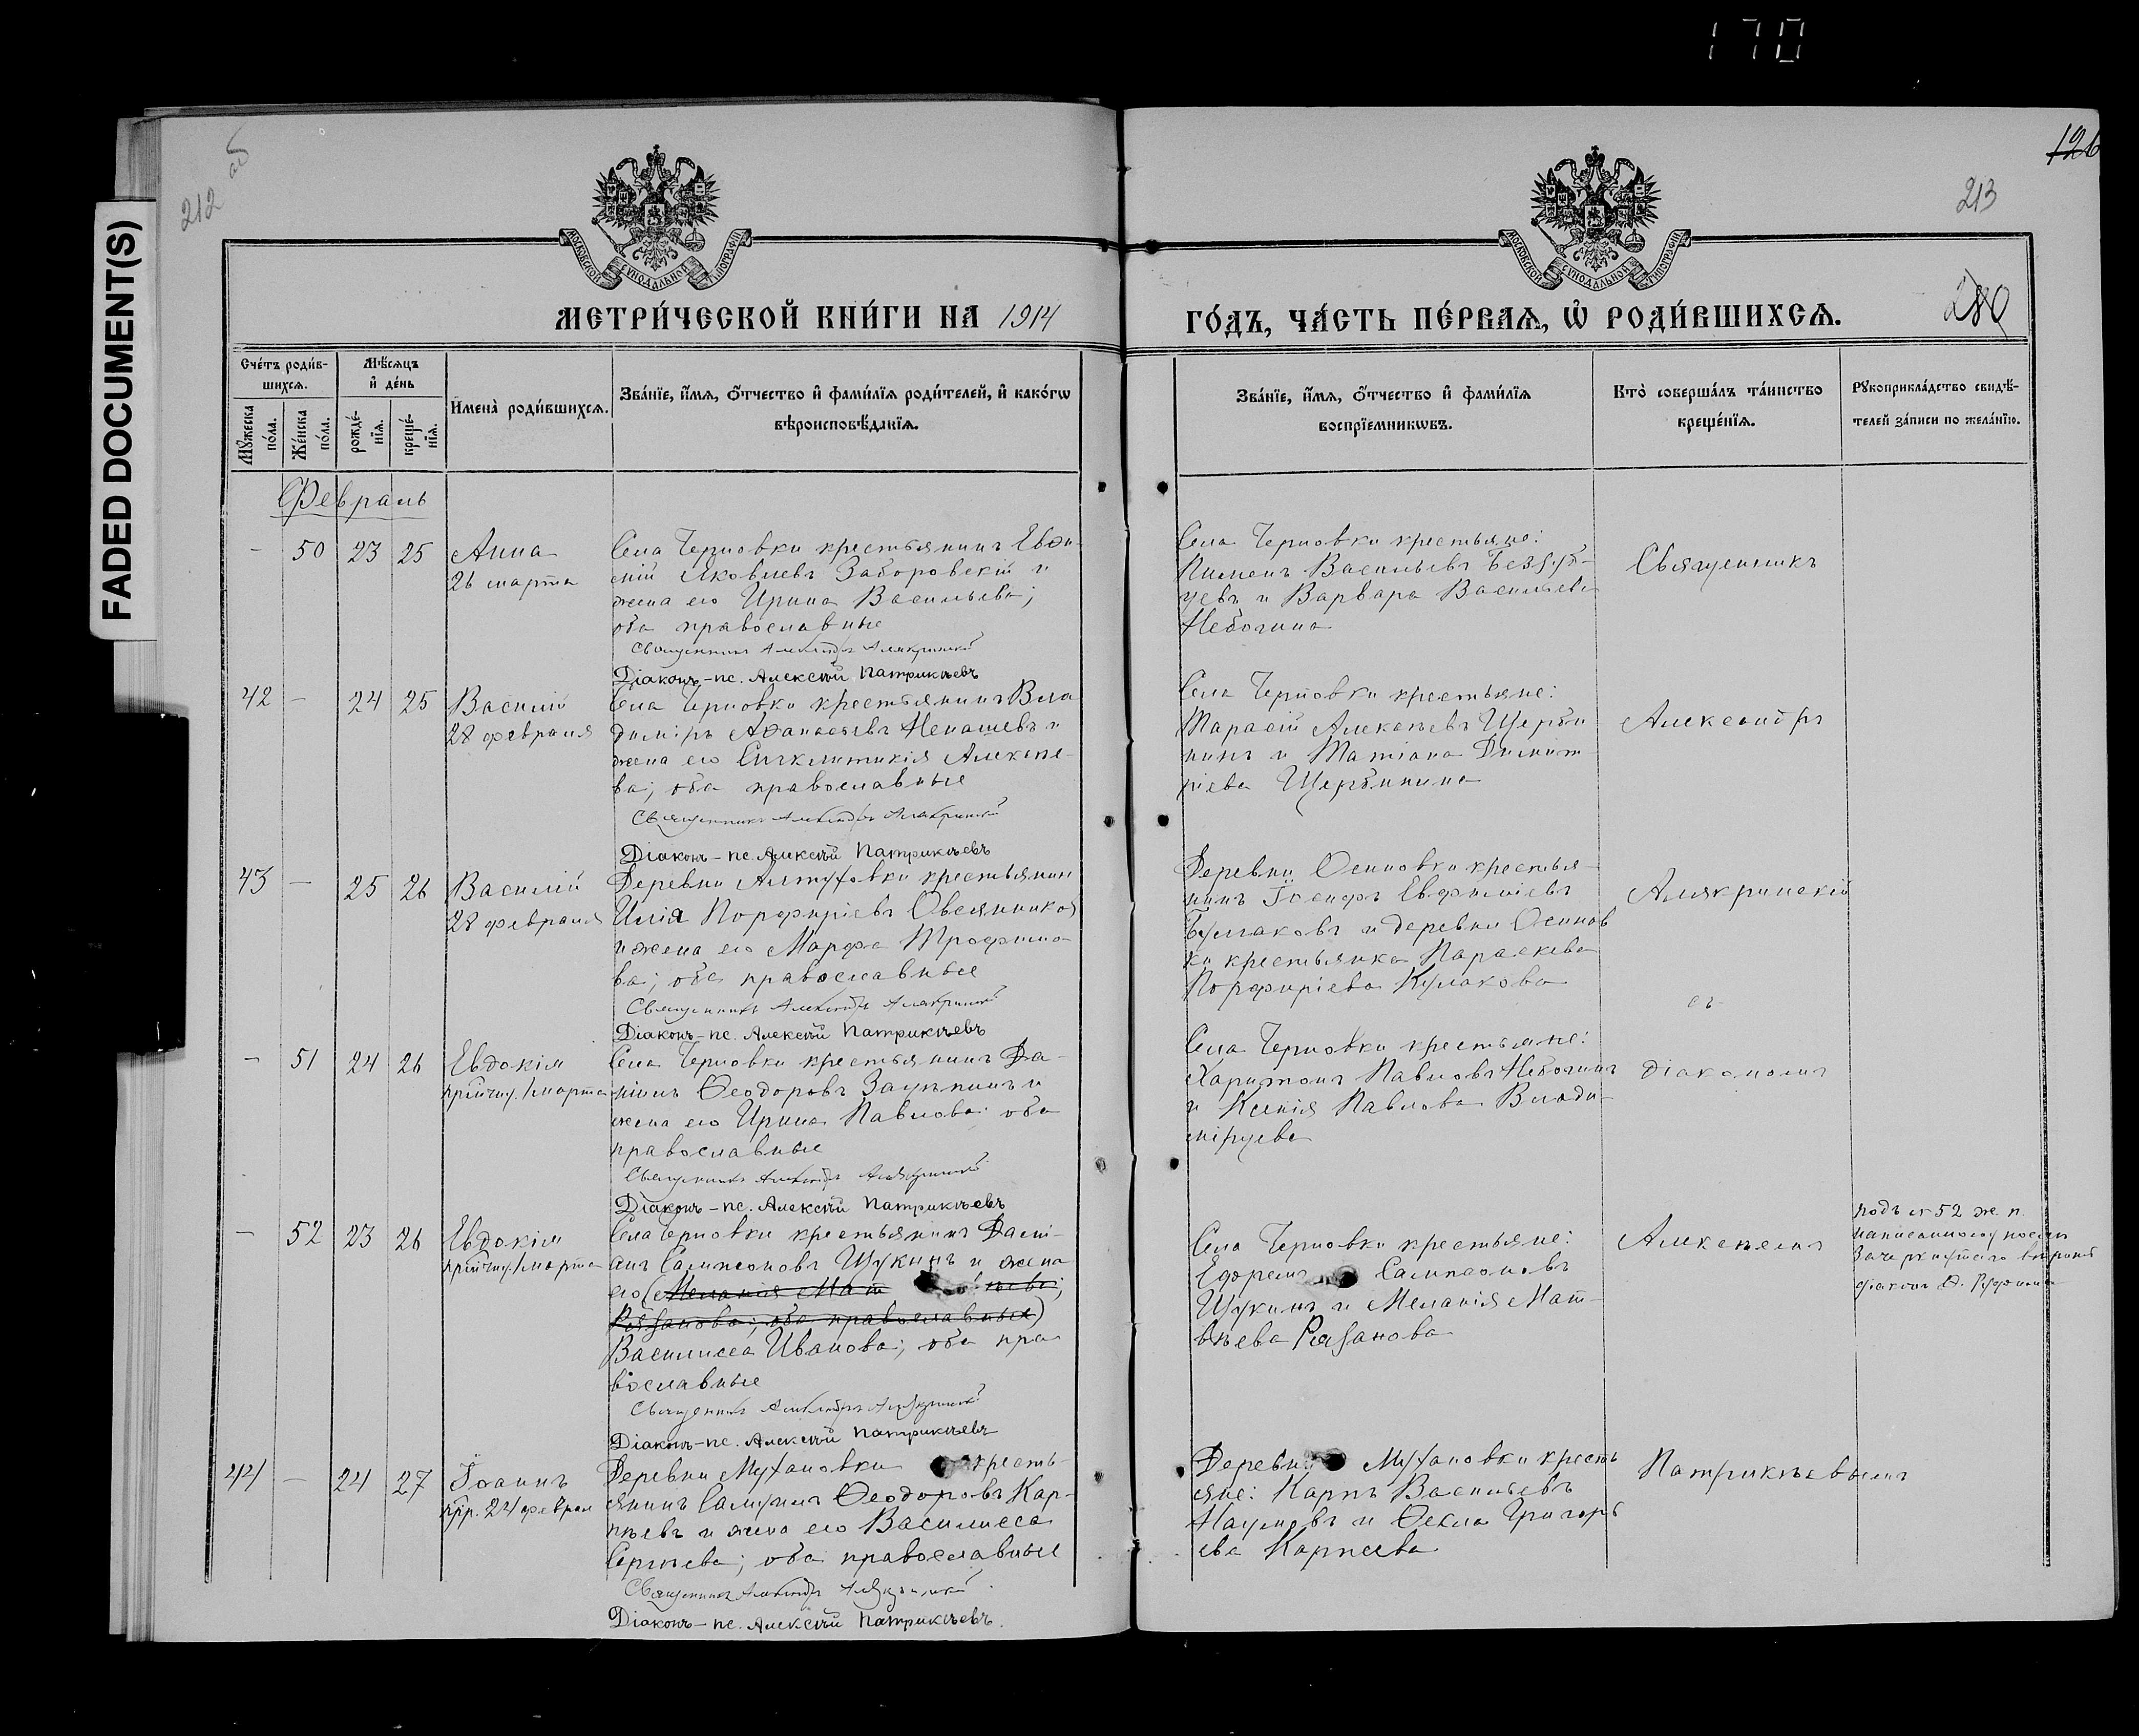 170
FADED DOCUMENT(S)
212 об
126
213
280
МОСКОВСКОЙ СѴНОДАЛЬНОЙ ТИПОГРАФІИ
МОСКОВСКОЙ СѴНОДАЛЬНОЙ ТИПОГРАФІИ
МЕТРИ́ЧЕСКОЙ КНИ́ГИ НА 1914
ГО́ДЪ, ЧА́СТЬ ПЕ́РВАѦ, Ѡ҆ РОДИ́ВШИХСѦ.
Сче́тъ роди́в-
шихсѧ.
Мꙋ́жеска по́ла.
Же́нска по́ла.
Мѣ́сѧцъ
и҆ де́нь
рожде́-
нїѧ.
креще́-
нїѧ.
И҆мена̀ роди́вшихсѧ.
Зва́нїе, и҆́мѧ, ѻ҆́тчество и҆ фами́лїѧ роди́телей, и҆ како́гѡ
вѣроисповѣ́данїѧ.
Зва́нїе, и҆́мѧ, ѻ҆́тчество и҆ фами́лїѧ
воспрїе́мникѡвъ.
Кто̀ соверша́лъ та́инство
креще́нїѧ.
Рꙋкоприкла́дство свидѣ́-
телей за́писи по жела́нїю.
Февраль
- 50 23 25 Анна
26 марта
Села Черновки крестьянинъ Евѳи-
мій Яковлевъ Заборовскій и
жена его Ирина Васильева;
оба православные
Священникъ Александръ Алякринскій
Діаконъ-пс. Алексѣй Патрикѣевъ
Села Черновки крестьяне:
Пименъ Васильевъ Беззуб-
цевъ и Варвара Васильева
Небогина
Священникъ
42 - 24 25 Василій
28 февраля
Села Черновки крестьянинъ Вла
диміръ Аѳанасьевъ Ненашевъ и
жена его Синклитикія Алексѣе-
ва; оба православные
Священникъ Александръ Алякринскій
Діаконъ-пс. Алексѣй Патрикѣевъ
Села Черновки крестьяне:
Тарасій Алексѣевъ Щерби
нинъ и Татіана Димит
ріева Щербинина
Александръ
43 - 25 26 Василій
28 февраля
Деревни Алтуховки крестьянин
Илія Порфиріевъ Овсянников
и жена его Марфа Трофимо-
ва; оба православные
Священникъ Александръ Алякринскій
Діаконъ-пс. Алексѣй Патрикѣевъ
Деревни Осиновки крестья-
нинъ Іосифъ Евфиміевъ
Булгаковъ и деревни Осинов
ки крестьянка Параскева
Порфиріева Кулакова
Алякринскій
съ
- 51 24 26 Евдокія
1 марта
Села Черновки крестьянинъ Да-
ніилъ Ѳеодоровъ и
жена его Ирина Павлова: оба
православные
Священникъ Александръ Алякринскій
Діаконъ-пс. Алексѣй Патрикѣевъ
Села Черновки крестьяне:
Харитонъ Павловъ Небогинъ
и Ксенія Павлова Влади-
мірцева
діакономъ
- 52 23 26 Евдокія
1 марта
Села Черновки крестьянинъ
Сампсоновъ Щукинъ и жена
его (Меланія Мат ѣева;
Рязанова; оба православные)
Василисса Иванова; оба пра
вославные
Священникъ Александръ Алякринскій
Діаконъ-пс. Алексѣй Патрикѣевъ
Села Черновки крестьяне:
Ефремъ Сампсоновъ
Щукинъ и Меланія Мат-
вѣева Рязанова
Алексѣемъ
подъ № 52 ж. п.
написанному послѣ
зачеркнутаго вѣрить
діакон
44 - 24 27 Іоаннъ
пр. 24 феврал
Деревни Мухановки кресть-
янинъ Самуилъ Ѳеодоровъ Кар-
пѣевъ и жена его Василисса
Сергѣева; оба православные
Священникъ Александръ Алякринскій
Діаконъ-пс. Алексѣй Патрикѣевъ.
Деревни Мухановки кресть
яне: Карпъ Васильевъ
Наумовъ и Ѳекла Григорь
ева Карпеева
Патрикѣевымъ